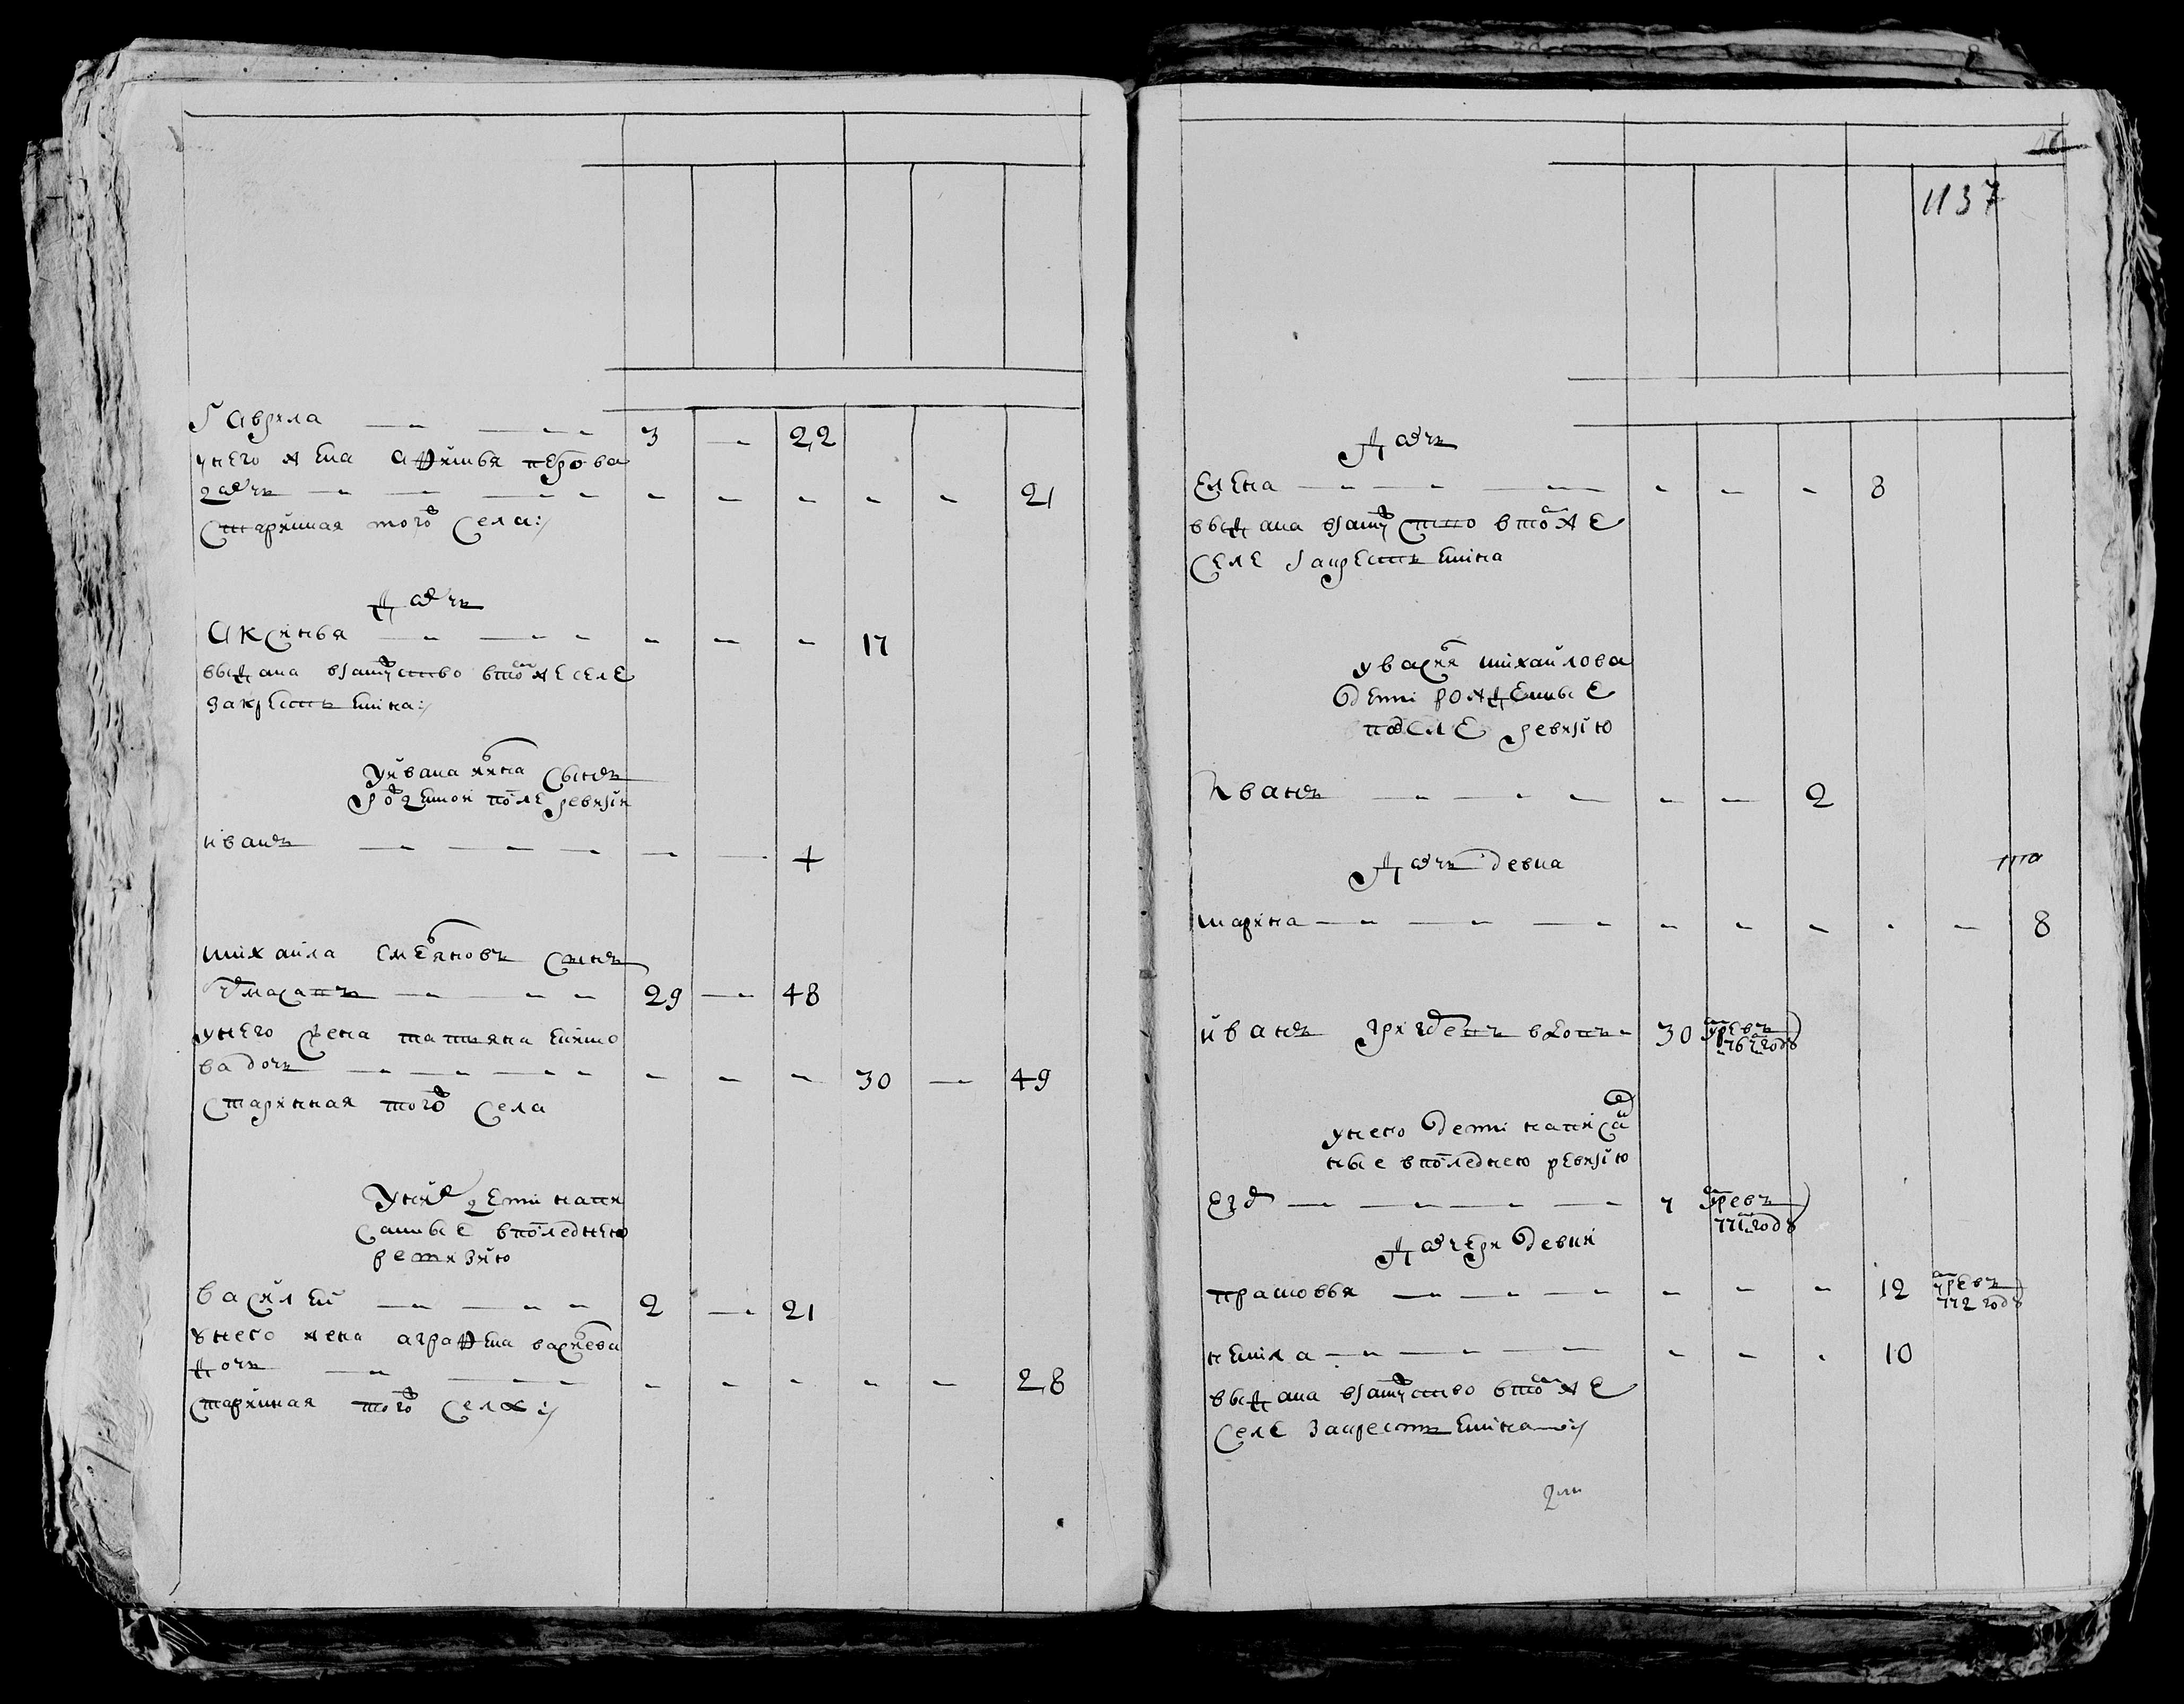 Гаврила — — 3 — 22
у него жена афимья петрова
дочь — — — — — — — — 21
старинная того села:/
дочь
Аксинья — — — — — 17
выдана взамуство в том же селе
за крестьенина:/
у ивана жъ сынъ
рожденой после ревизии
иванъ — — — — — +
михаила емельяновъ сынъ
— — 29 — 48
у него жена татьяна
ва дочь — — — — — — 30 — 49
старинная того села
у них дети напи
санные в последнею
ревизию
василей — — 2 — 21
у него жена аграфена
дочь — — — — — — — 28
старинная того села:/
1137
дочь
елена — — — — — — 8
выдана взамуство в том же
селе за крестьенина
у василя михайлова
дети рожденные
после ревизию
Иванъ — — — — — 2
дочь девка
марина — — — — — — — — 8
иванъ вдовъ 30 умре въ
767 годъ
у него дети написа
ные в последнею ревизию
— — — — 7 умре въ
771 годъ
дочери девки
прасковья — — — — — — 12 умре въ
772 годъ
— — — — — — 10
выдана взамуство в том же
селе за крестьенина:/